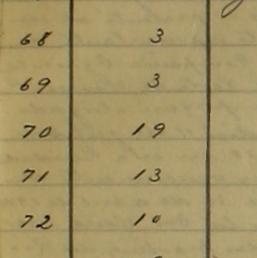 68 3
69 3
70 19
71 13
72 10